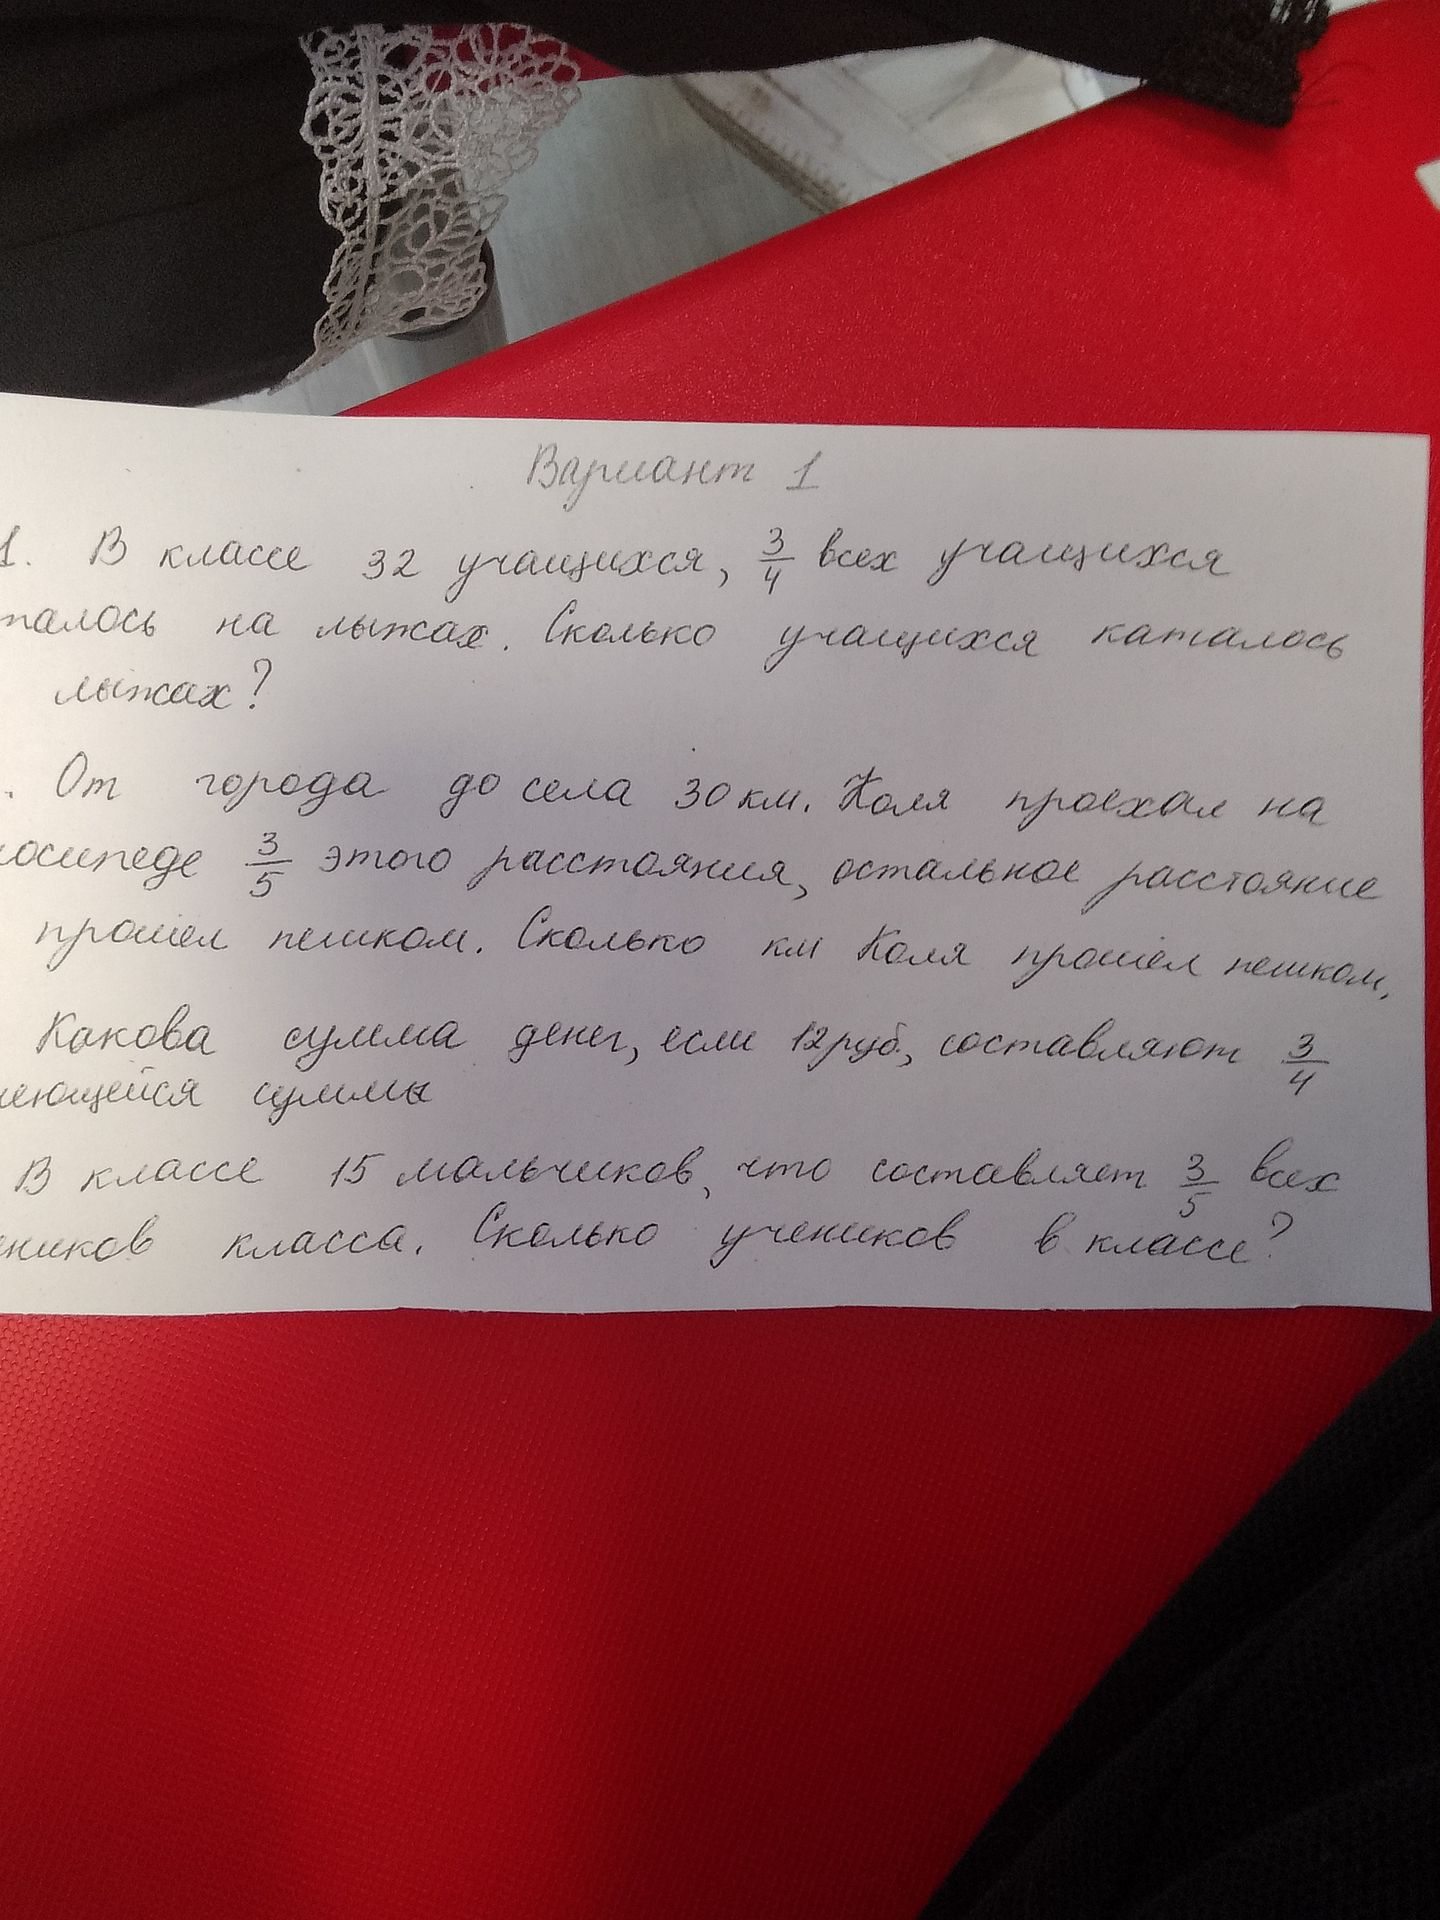 Вариант 1
1. В классе 32 учащихся, 3/4 всех учащихся
талось на лыжах. Сколько учащихся каталось
лыжах?
. От города до села 30 км. Коля проехал на
лосипеде 3/5 этого расстояния, остальное расстояние
прошёл пешком. Сколько км Коля прошёл пешком.
Какова сумма денег, если 12 руб., составляют 3/4
меющейся суммы
В классе 15 мальчиков, что составляет 3/5 всех
еников класса. Сколько учеников в классе?